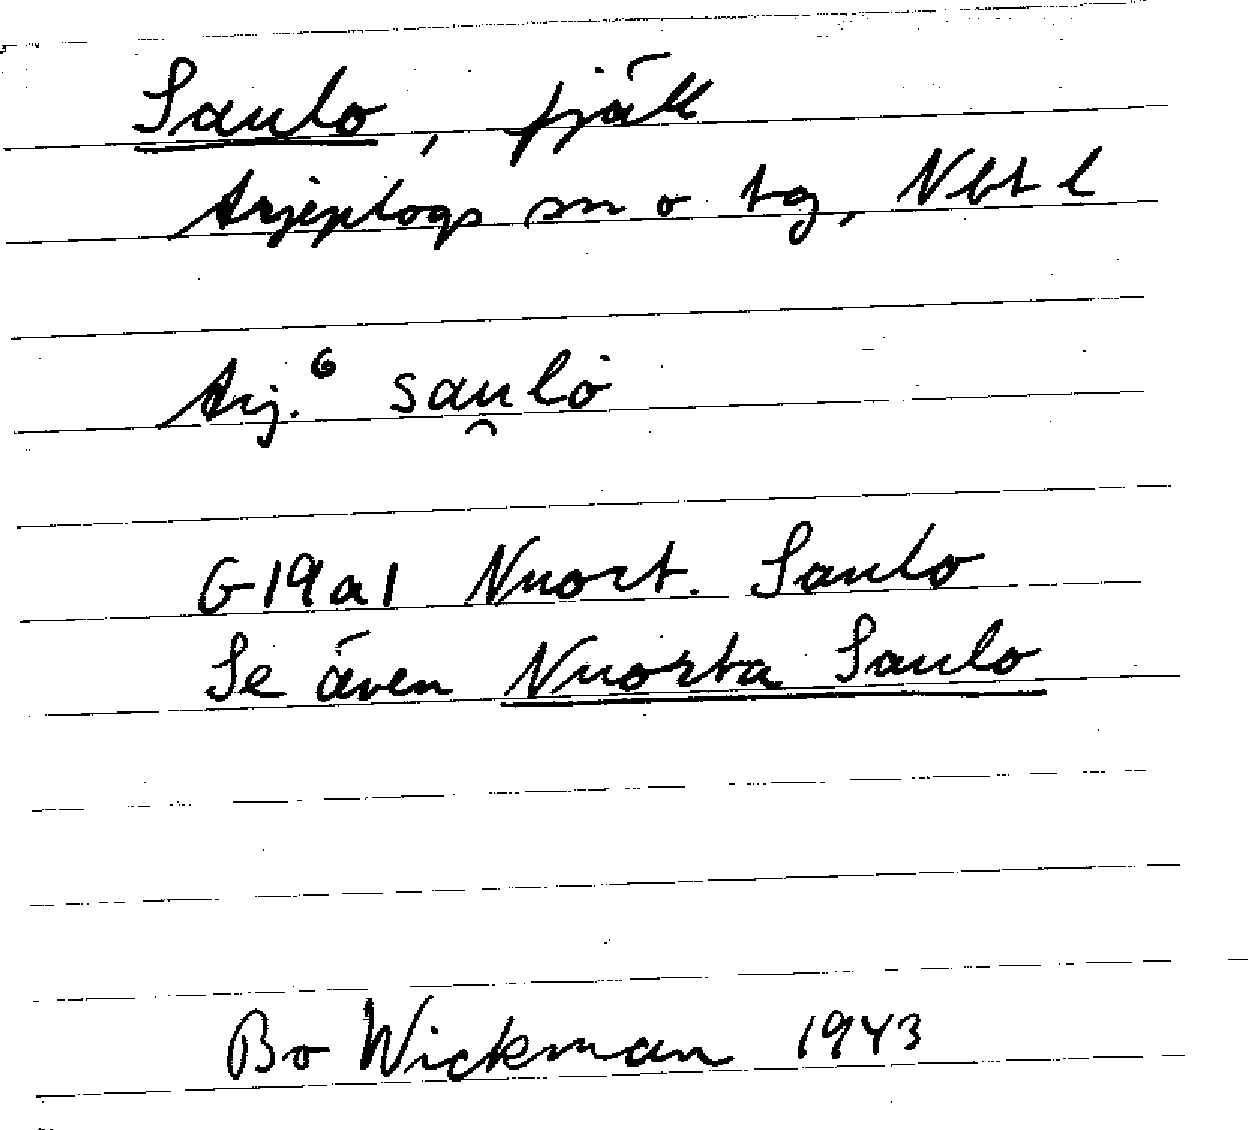 Saulo, fjäll
Arjeplogs sn o tg, Nbt l
Arj.⁶ sau̯lȯ
G19a1 Nuort. Saulo
Se även Nuorta Saulo
Bo Wickman 1943